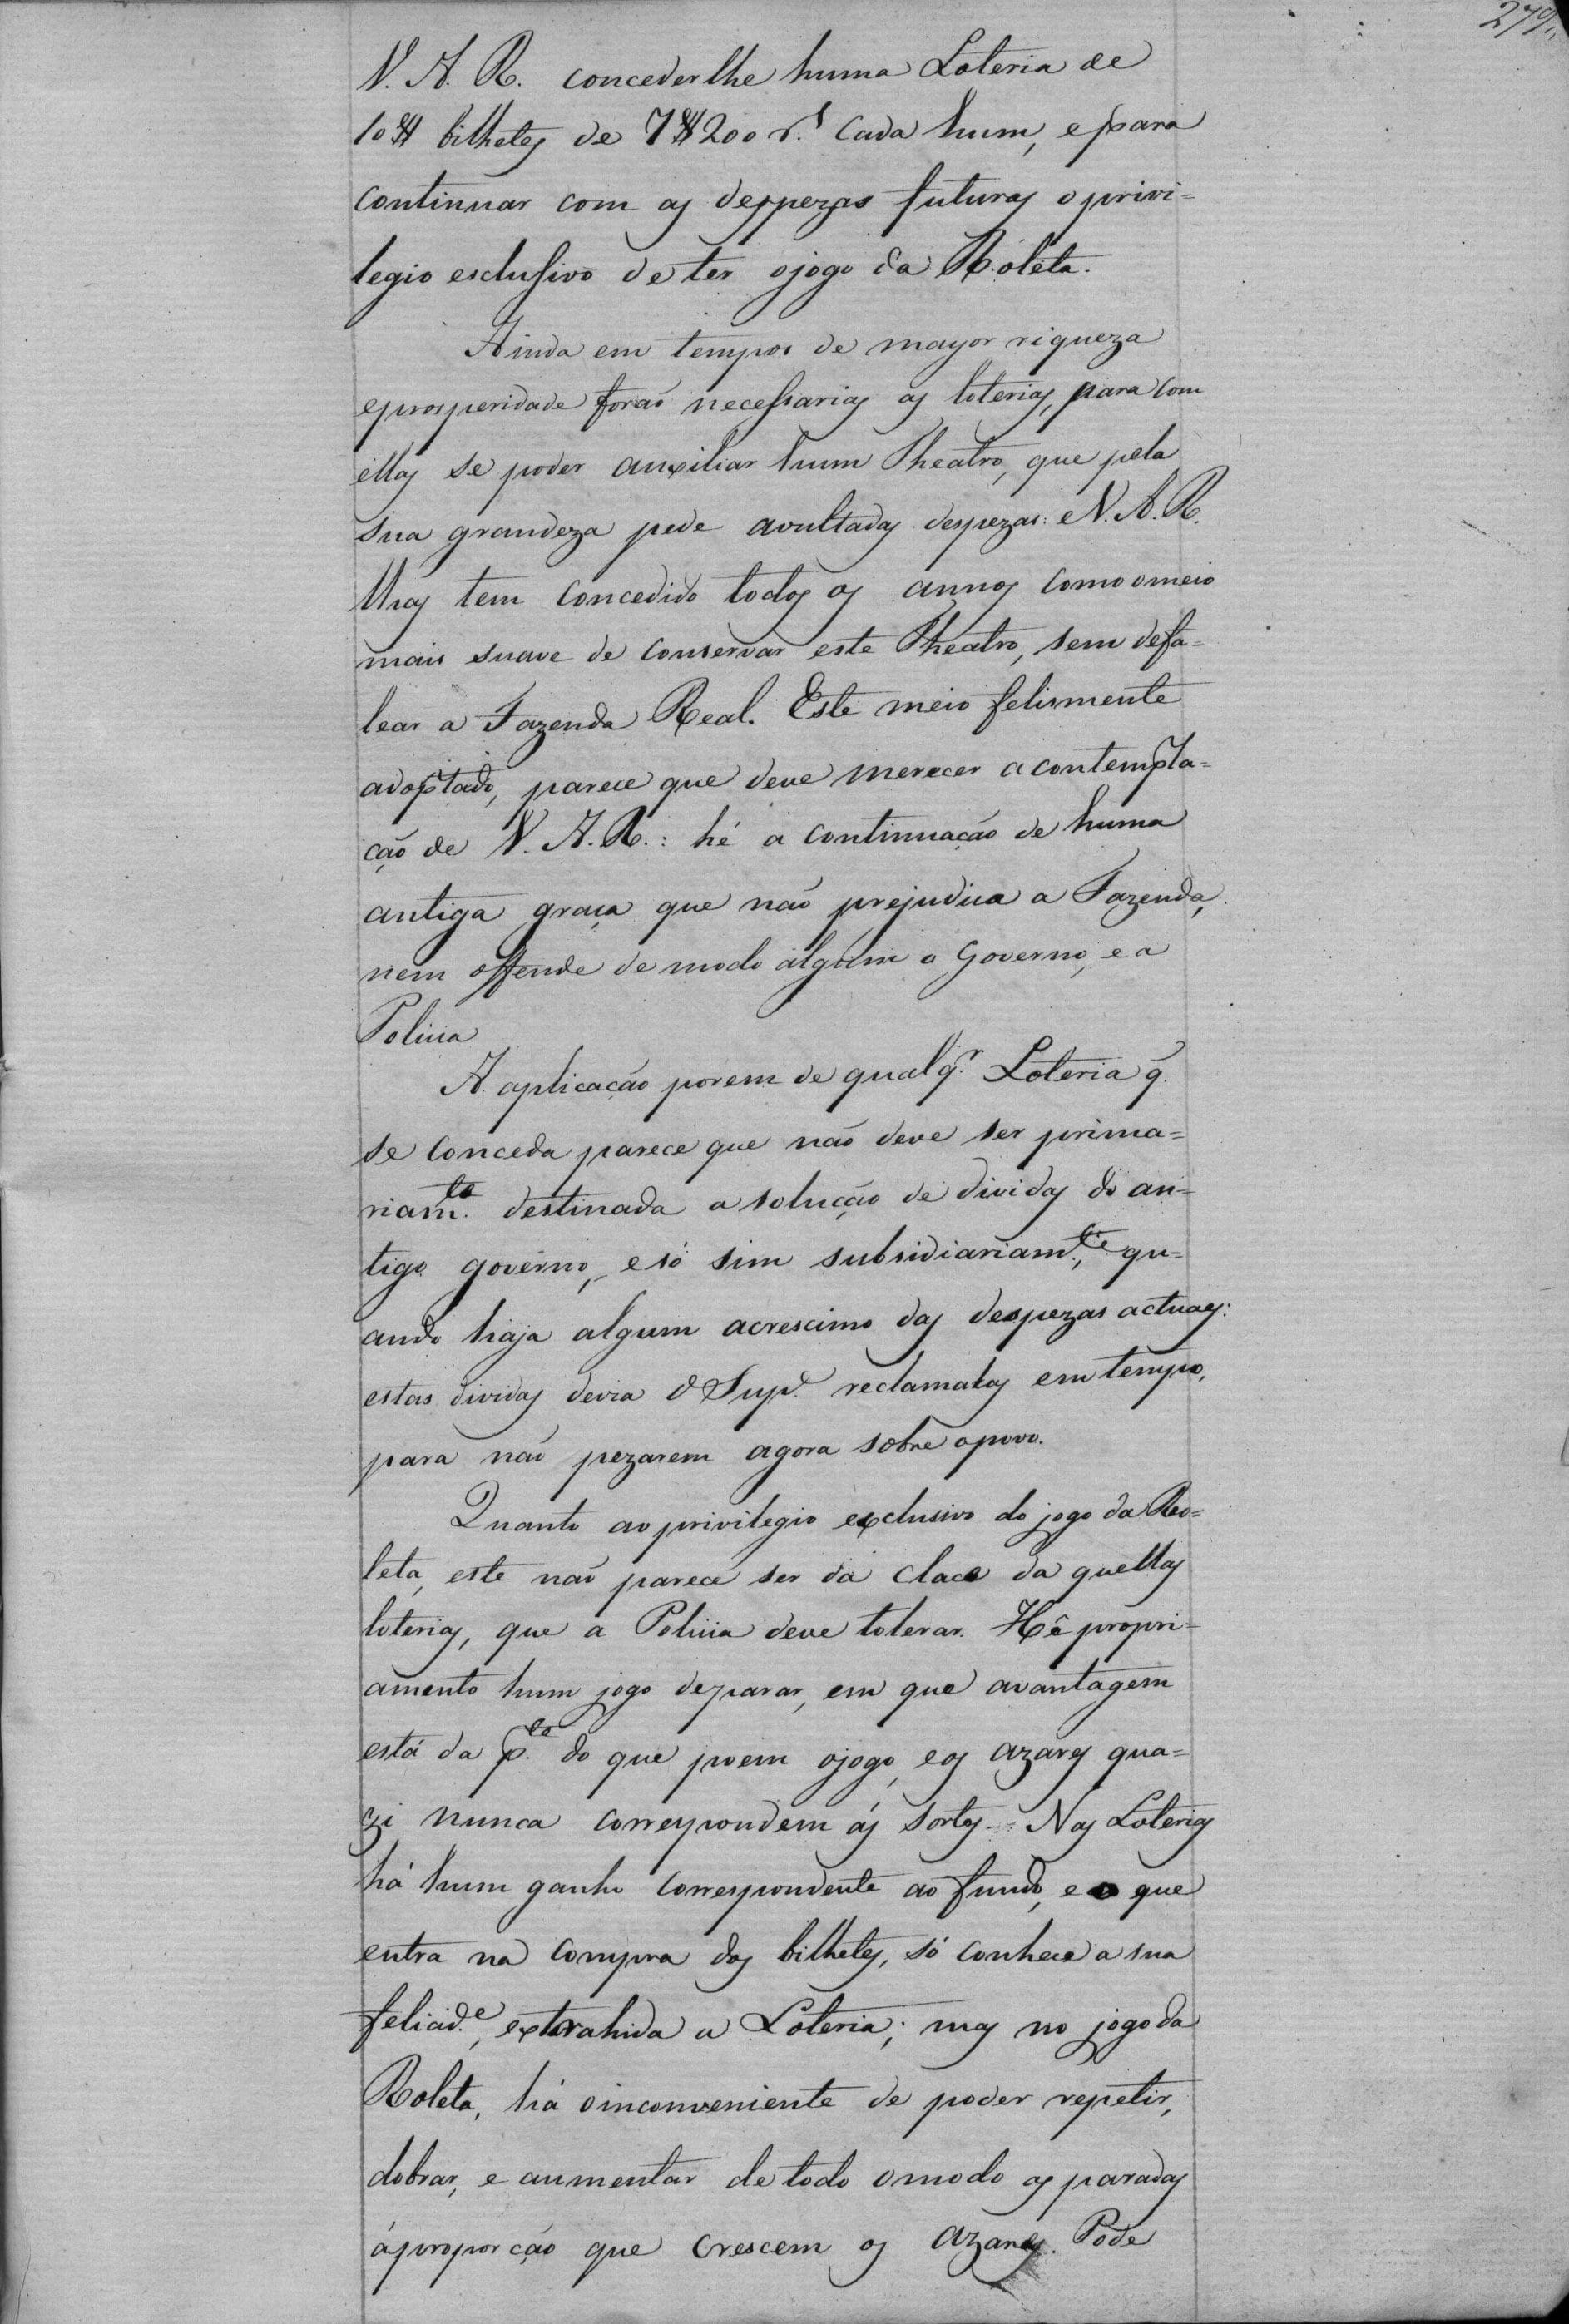 279.
V. A. R. concederlhe huma Loteria de
10$ bilhetes de 7$200 r.s cada hum, e para
continuar com as despezas futuras o privi=
legio esclusivo de ter o jogo da Roleta.
Ainda em tempos de mayor riqueza
e prosperidade foraõ necessarias as loterias, para com
ellas se poder auxiliar hum Theatro, que pela
sua grandeza pede avultadas despezas: e V. A. R.
lhas tem concedido todos os annos como o meio
mais suave de conservar este Theatro, sem defa=
lcar a Fazenda Real. Este meio felismente
adoptado, parece que deve merecer a contempla=
ção de V. A. R.: hé a continuação de huma
antiga graça que naõ prejudica a Fazenda,
nem offende de modo algum o Governo, e a
Policia
A aplicação porem de qualq.r Loteria q̃
se conceda parece que não deve ser prima=
riam.te destinada a solução de dividas do an=
tigo governo, e só sim subsidiariam.te, qu=
ando haja algum acrescimo das despezas actuaes:
estas dividas devia o Sup.e reclamalas em tempo,
para naõ pezarem agora sobre o povo.
Quanto ao privilegio exclusivo do jogo da Ro=
leta, este naõ parece ser da clace da quellas
loterias, que a Policia deve tolerar. Hê propri=
amento hum jogo de parar, em que avantagem
está da p.te do que poem o jogo, e os azares qua=
zi nunca correspondem ás sortes. Nas Loterias
há hum ganho correspondente ao fundo, e o que
entra na compra dos bilhetes, só conhece a sua
felicid.e, extrahida a Loteria; mas no jogo da
Roleta, há o inconveniente de poder repetir,
dobrar, e aumentar de todo o modo as paradas
á proporção que crescem os azares. Pode